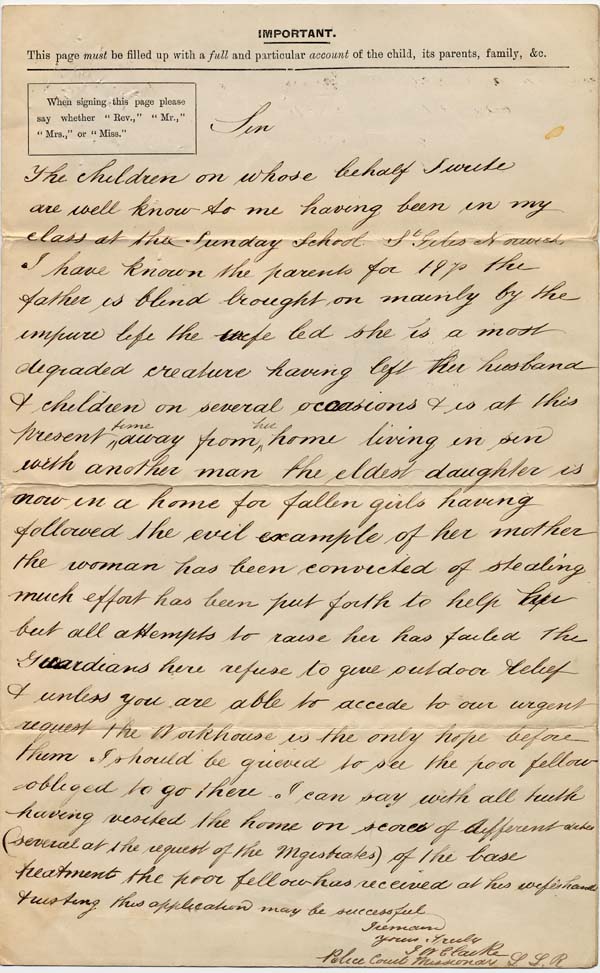 IMPORTANT.
This page must be filled up with a full and particular account of the child, its parents, family, &c.
When signing this page please
say whether "Rev.," "Mr.,"
"Mrs.," or "Miss."
Sir
The children on whose behalf I write
are well know to me having been in my
class at the Sunday School St Giles Norwich
I have known the parents for the
father is blind brought on mainly by the
impure life the wife led she is a most
degraded creature having left her husband
& children on several occasions & is at this
present time away from her home living in sin
with another man the eldest daughter is
now in a home for fallen girls having
followed the evil example of her mother
the woman has been convicted of stealing
much effort has been put forth to help her
but all attempts to raise her has failed the
Guardians here refuse to give outdoor relief
& unless you are able to accede to our urgent
request the Workhouse is the only hope before
them I should be grieved to see the poor fellow
obliged to go there. I can say with all truth
having visited the home on scores of different
(several at the request of the Mgistrates) of the base
treatment the poor fellow has received at his wife's hand
trusting this application may be successful
I remain
Yours Truly
Clarke
Police Court Missionary